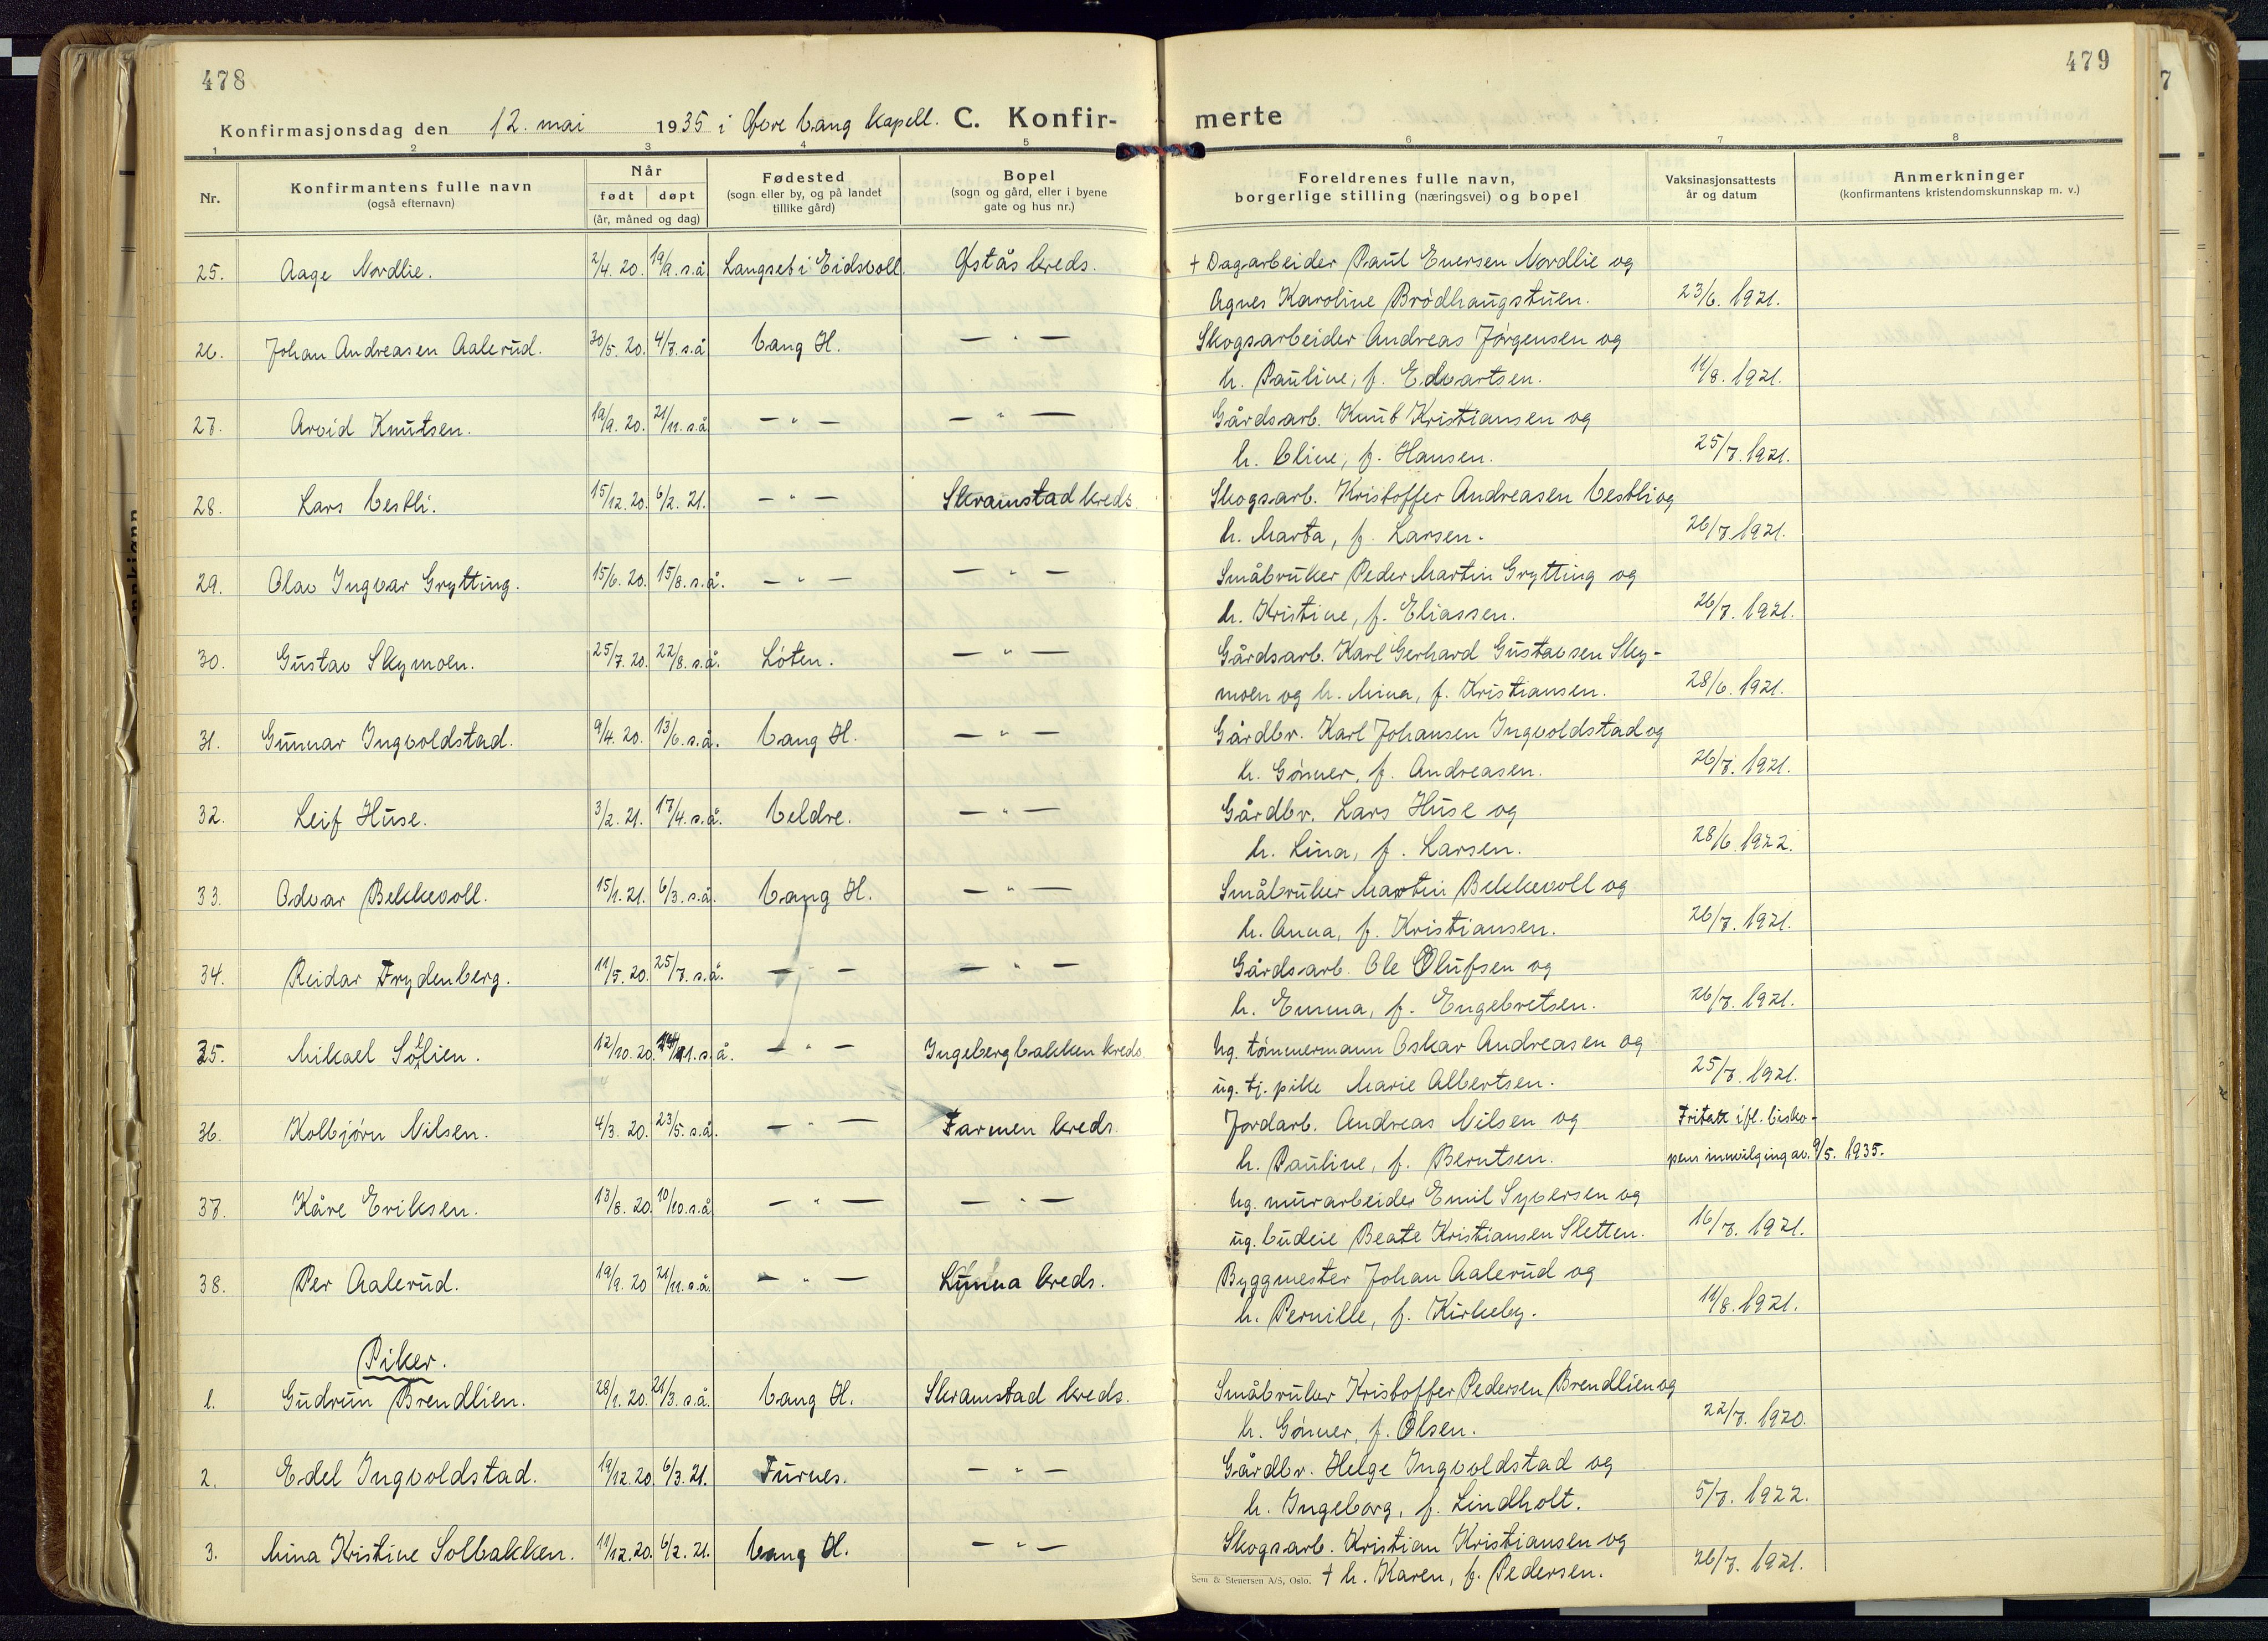 478
479
Konfirmasjonsdag den 12. mai 1935 i Øvre Vang kapell. C. Konfir-
merte
1 2 3 4 5 6 7 8
Nr. Konfirmantens fulle navn (også efternavn) Når født døpt (år, måned og dag) Fødested (sogn eller by, og på landet tillike gård) Bopel (sogn og gård, eller i byene gate og hus nr.) Foreldrenes fulle navn, borgerlige stilling (næringsvei) og bopel Vaksinasjonsattests år og datum Anmerkninger (konfirmantens kristendomskunnskap m. v.)
25. Aage Nordlie. 2/4. 20. 19/9. s.å Langset i Eidsvoll. Østås kreds. † Dagarbeider Paul Evensen Nordlie og
Agnes Karoline Brødhaugstuen. 23/6. 1921.
26. Johan Andreasen Aalerud. 30/5. 20. 4/7. s.å Vang H. — " — Skogsarbeider Andreas Jørgensen og
h. Pauline, f. Edvartsen. 11/8. 1921.
27. Arvid Knutsen. 19/9. 20. 21/11. s.å — " — — " — Gårdsarb. Knut Kristiansen og
h. Oline, f. Hansen. 25/7. 1921.
28. Lars Vestli. 15/12. 20. 6/2. 21. — " — Skramstad kreds. Skogsarb. Kristoffer Andreasen Vestli og
h. Marta, f. Larsen. 26/7. 1921.
29. Olav Ingvar Grytting. 15/6. 20. 15/8. s.å. — " — — " — Småbruker Peder Martin Grytting og
h. Kristine, f. Eliassen. 26/7. 1921.
30. Gustav Skymoen. 25/7. 20. 22/8. s.å. Løten. — " — Gårdsarb. Karl Gerhard Gustavsen Sky-
moen og h. Mina, f. Kristiansen. 28/6. 1921.
31. Gunnar Ingvoldstad. 9/4. 20. 13/6. s.å. Vang H. — " — Gårdbr. Karl Johansen Ingvoldstad og
h. Gønner, f. Andreasen. 26/7. 1921.
32. Leif Huse. 3/2. 21. 17/4. s.å. Veldre. — " — Gårdbr. Lars Huse og
h. Lina, f. Larsen. 28/6. 1922.
33. Odvar Bekkevoll. 15/1. 21. 6/3. s.å. Vang H. — " — Småbruker Martin Bekkevoll og
h. Anna, f. Kristiansen. 26/7. 1921.
34. Reidar Frydenberg. 11/5. 20. 25/7. s.å. — " — — " — Gårdsarb. Ole Olufsen og
h. Emma, f. Engebretsen. 26/7. 1921.
35. Mikael Sølien. 12/10. 20. s.å. — " — Ingebergbakken kreds. Ug. tømmermann Oskar Andreasen og
ug. tj. pike Marie Albertsen. 25/7. 1921.
36. Kolbjørn Nilsen. 4/3. 20. 23/5. s.å. — " — Farmen kreds. Jordarb. Andreas Nilsen og Fritatt ifl. bisko-
h. Pauline, f. Berntsen. pens innvilging av. 9/5. 1935.
37. Kåre Eriksen. 13/8. 20. 10/10. s.å — " — — " — Ug. murarbeider Emil Syversen og
ug. budeie Beate Kristiansen Sletten. 16/7. 1921.
38. Per Aalerud. 19/9. 20 21/11. s.å. — " — Lunna kreds. Byggmester Johan Aalerud og
h. Pernille, f. Kirkeby. 11/8. 1921.
Piker.
1. Gudrun Brendlien. 28/1. 20. 21/3. s.å. Vang H. Skramstad kreds. Småbruker Kristoffer Pedersen Brendlien og
h. Gønner, f. Olsen. 22/7. 1920.
2. Edel Ingvoldstad. 19/12. 20. 6/3. 21. Furnes. — " — Gårdbr. Helge Ingvoldstad og
h. Ingeborg, f. Lindholt. 5/7. 1922.
3. Mina Kristine Solbakken. 11/12. 20. 6/2. 21. Vang H. — " — Skogsarb. Kristian Kristiansen og
Sem & Stenersen A/S, Oslo. † h. Karen, f. Pedersen. 26/7. 1921.